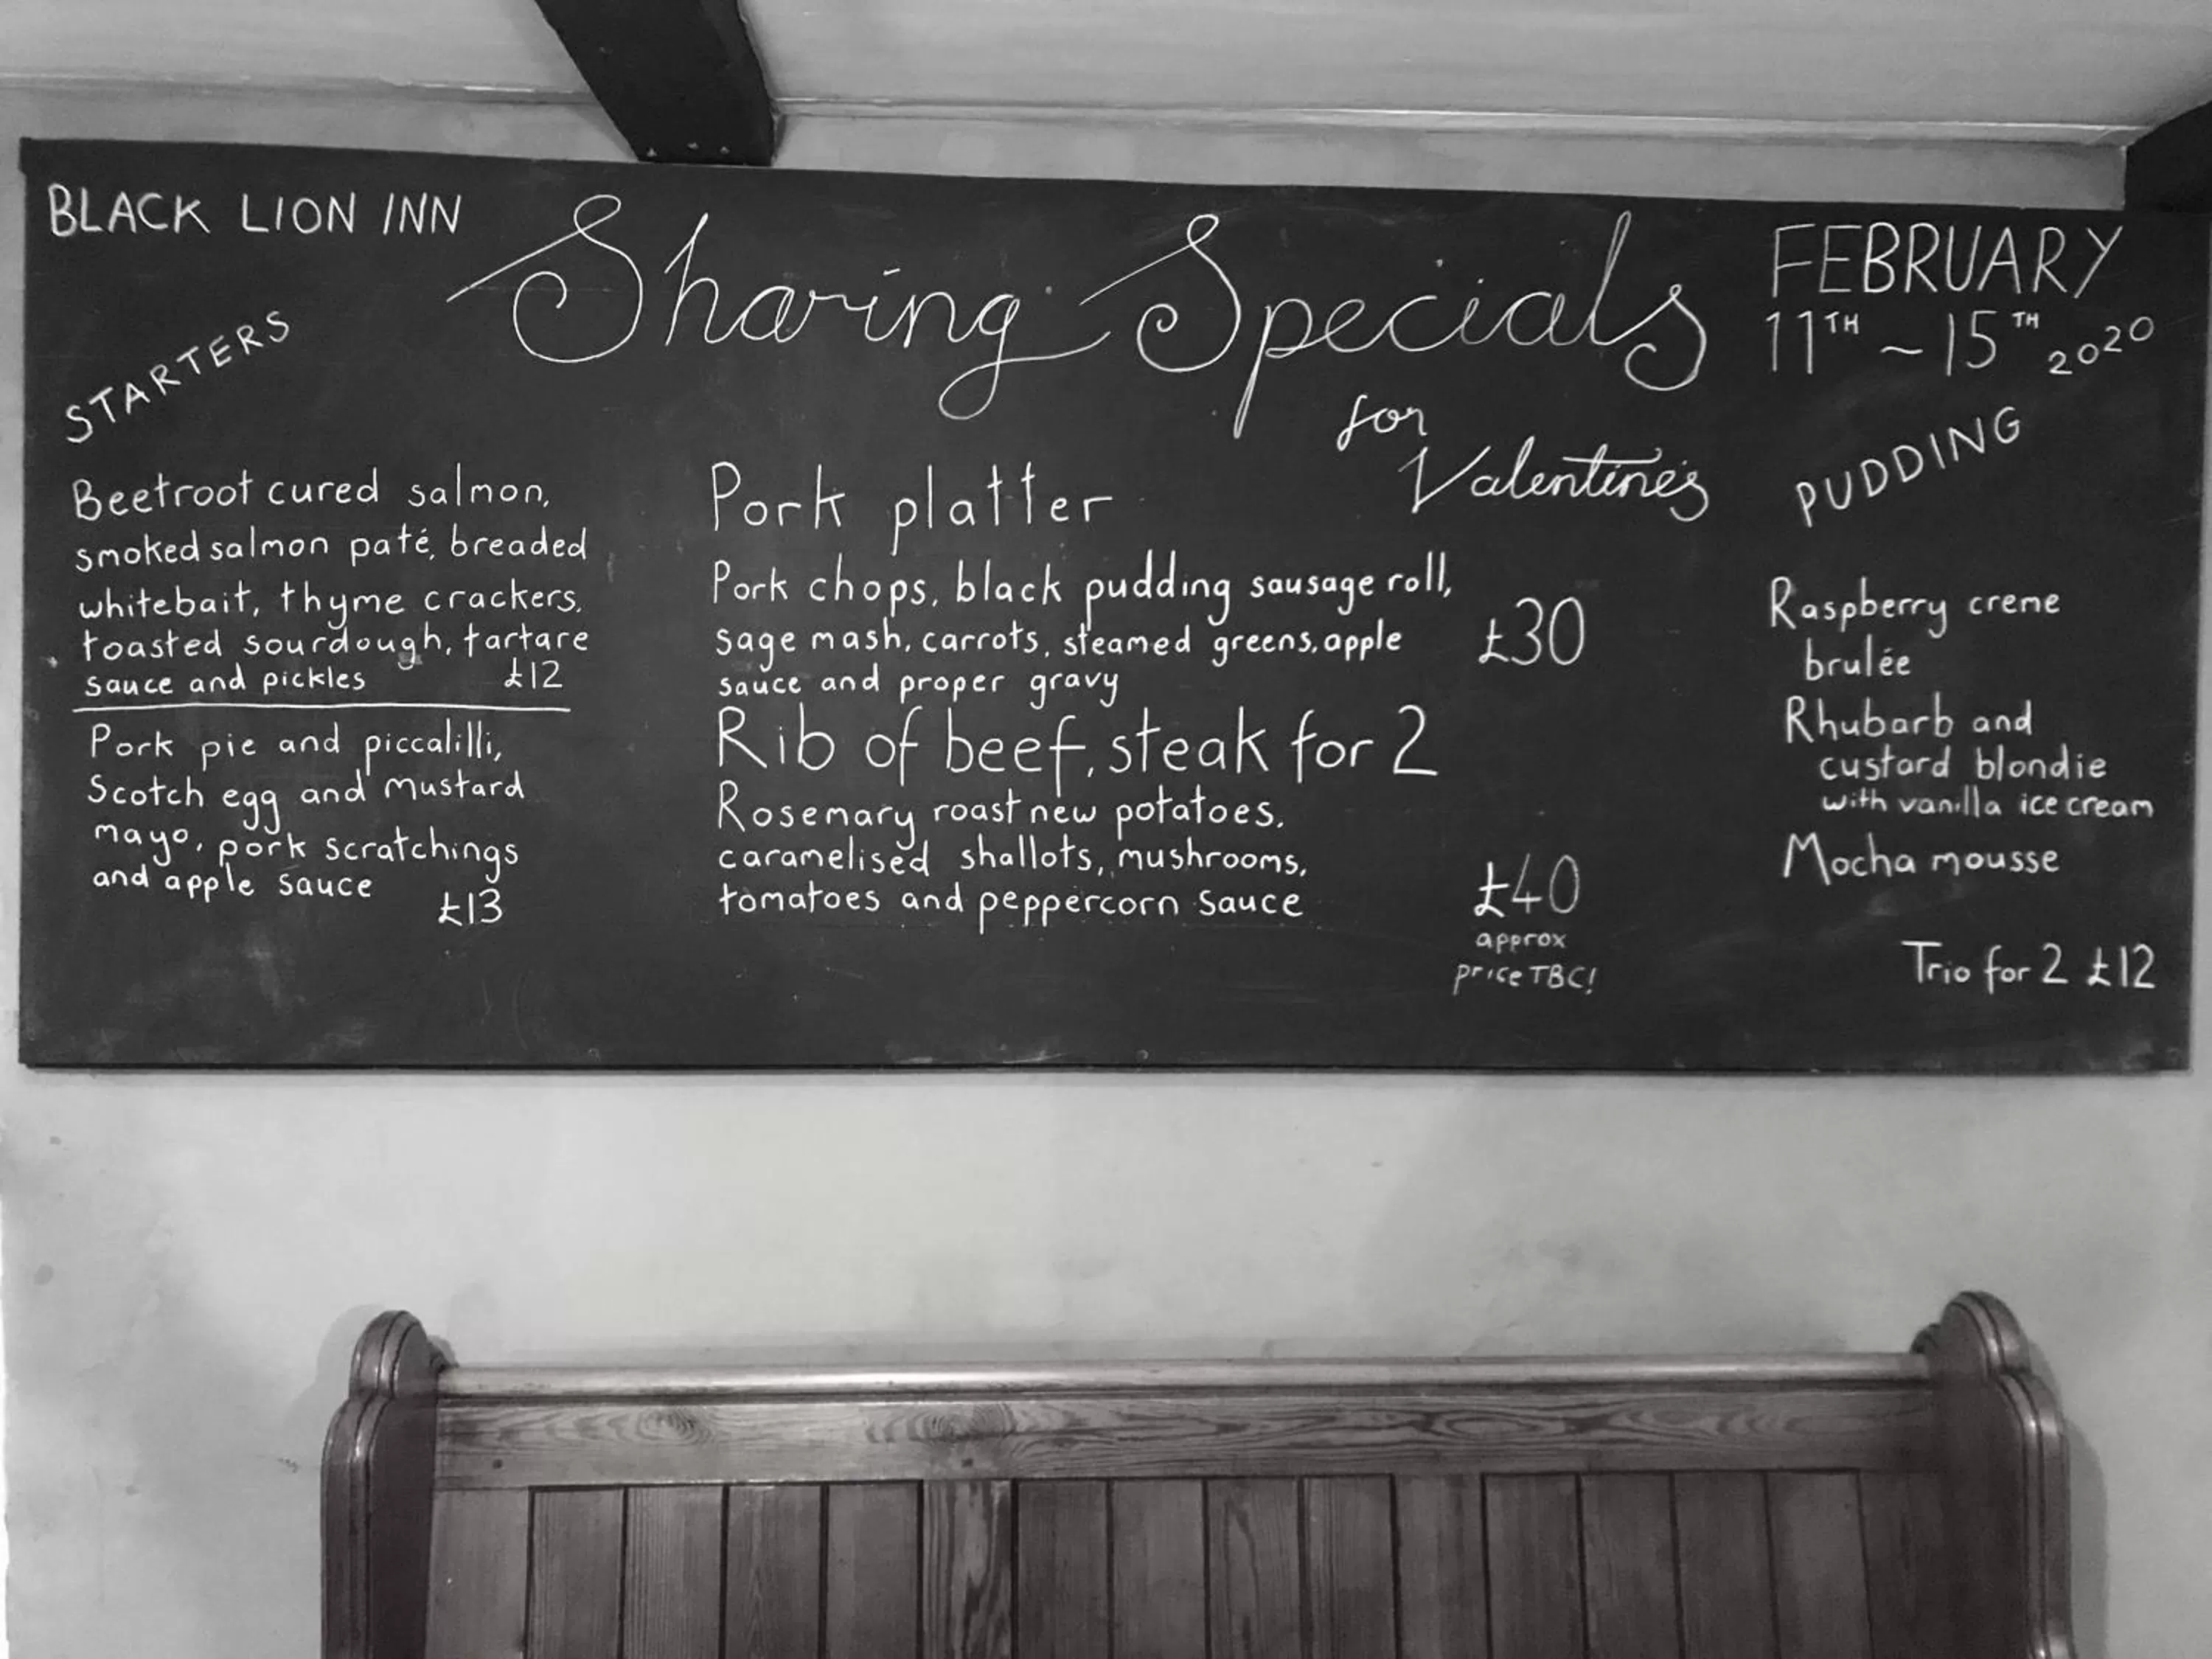 BLACK LION INN
Sharing Specials
for
Valentine's
FEBRUARY
11TH ~ 15TH 2020
STARTERS
Beetroot cured salmon,
smoked salmon paté, breaded
whitebait, thyme crackers,
toasted sourdough, tartare
sauce and pickles £12
Pork pie and piccalilli,
Scotch egg and mustard
mayo, pork scratchings
and apple sauce
£13
Pork platter
Pork chops, black pudding sausage roll,
sage mash, carrots, steamed greens, apple
sauce and proper gravy
£30
Rib of beef, steak for 2
Rosemary roast new potatoes,
caramelised shallots, mushrooms,
tomatoes and peppercorn sauce
£40
approx
price TBC!
PUDDING
Raspberry creme
brulée
Rhubarb and
custard blondie
with vanilla ice cream
Mocha mousse
Trio for 2 £12